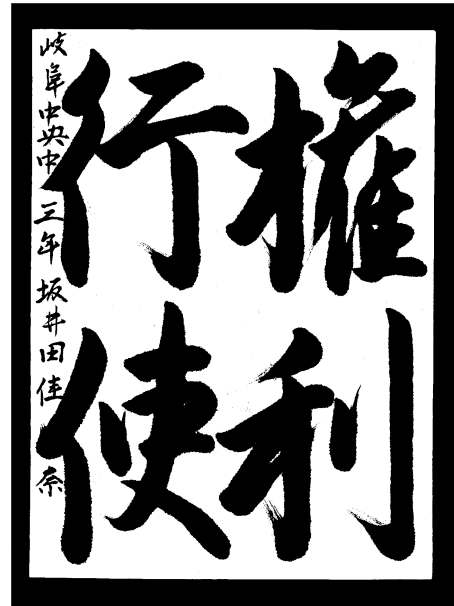 権利
行使
岐阜中央中三年 坂井田佳奈